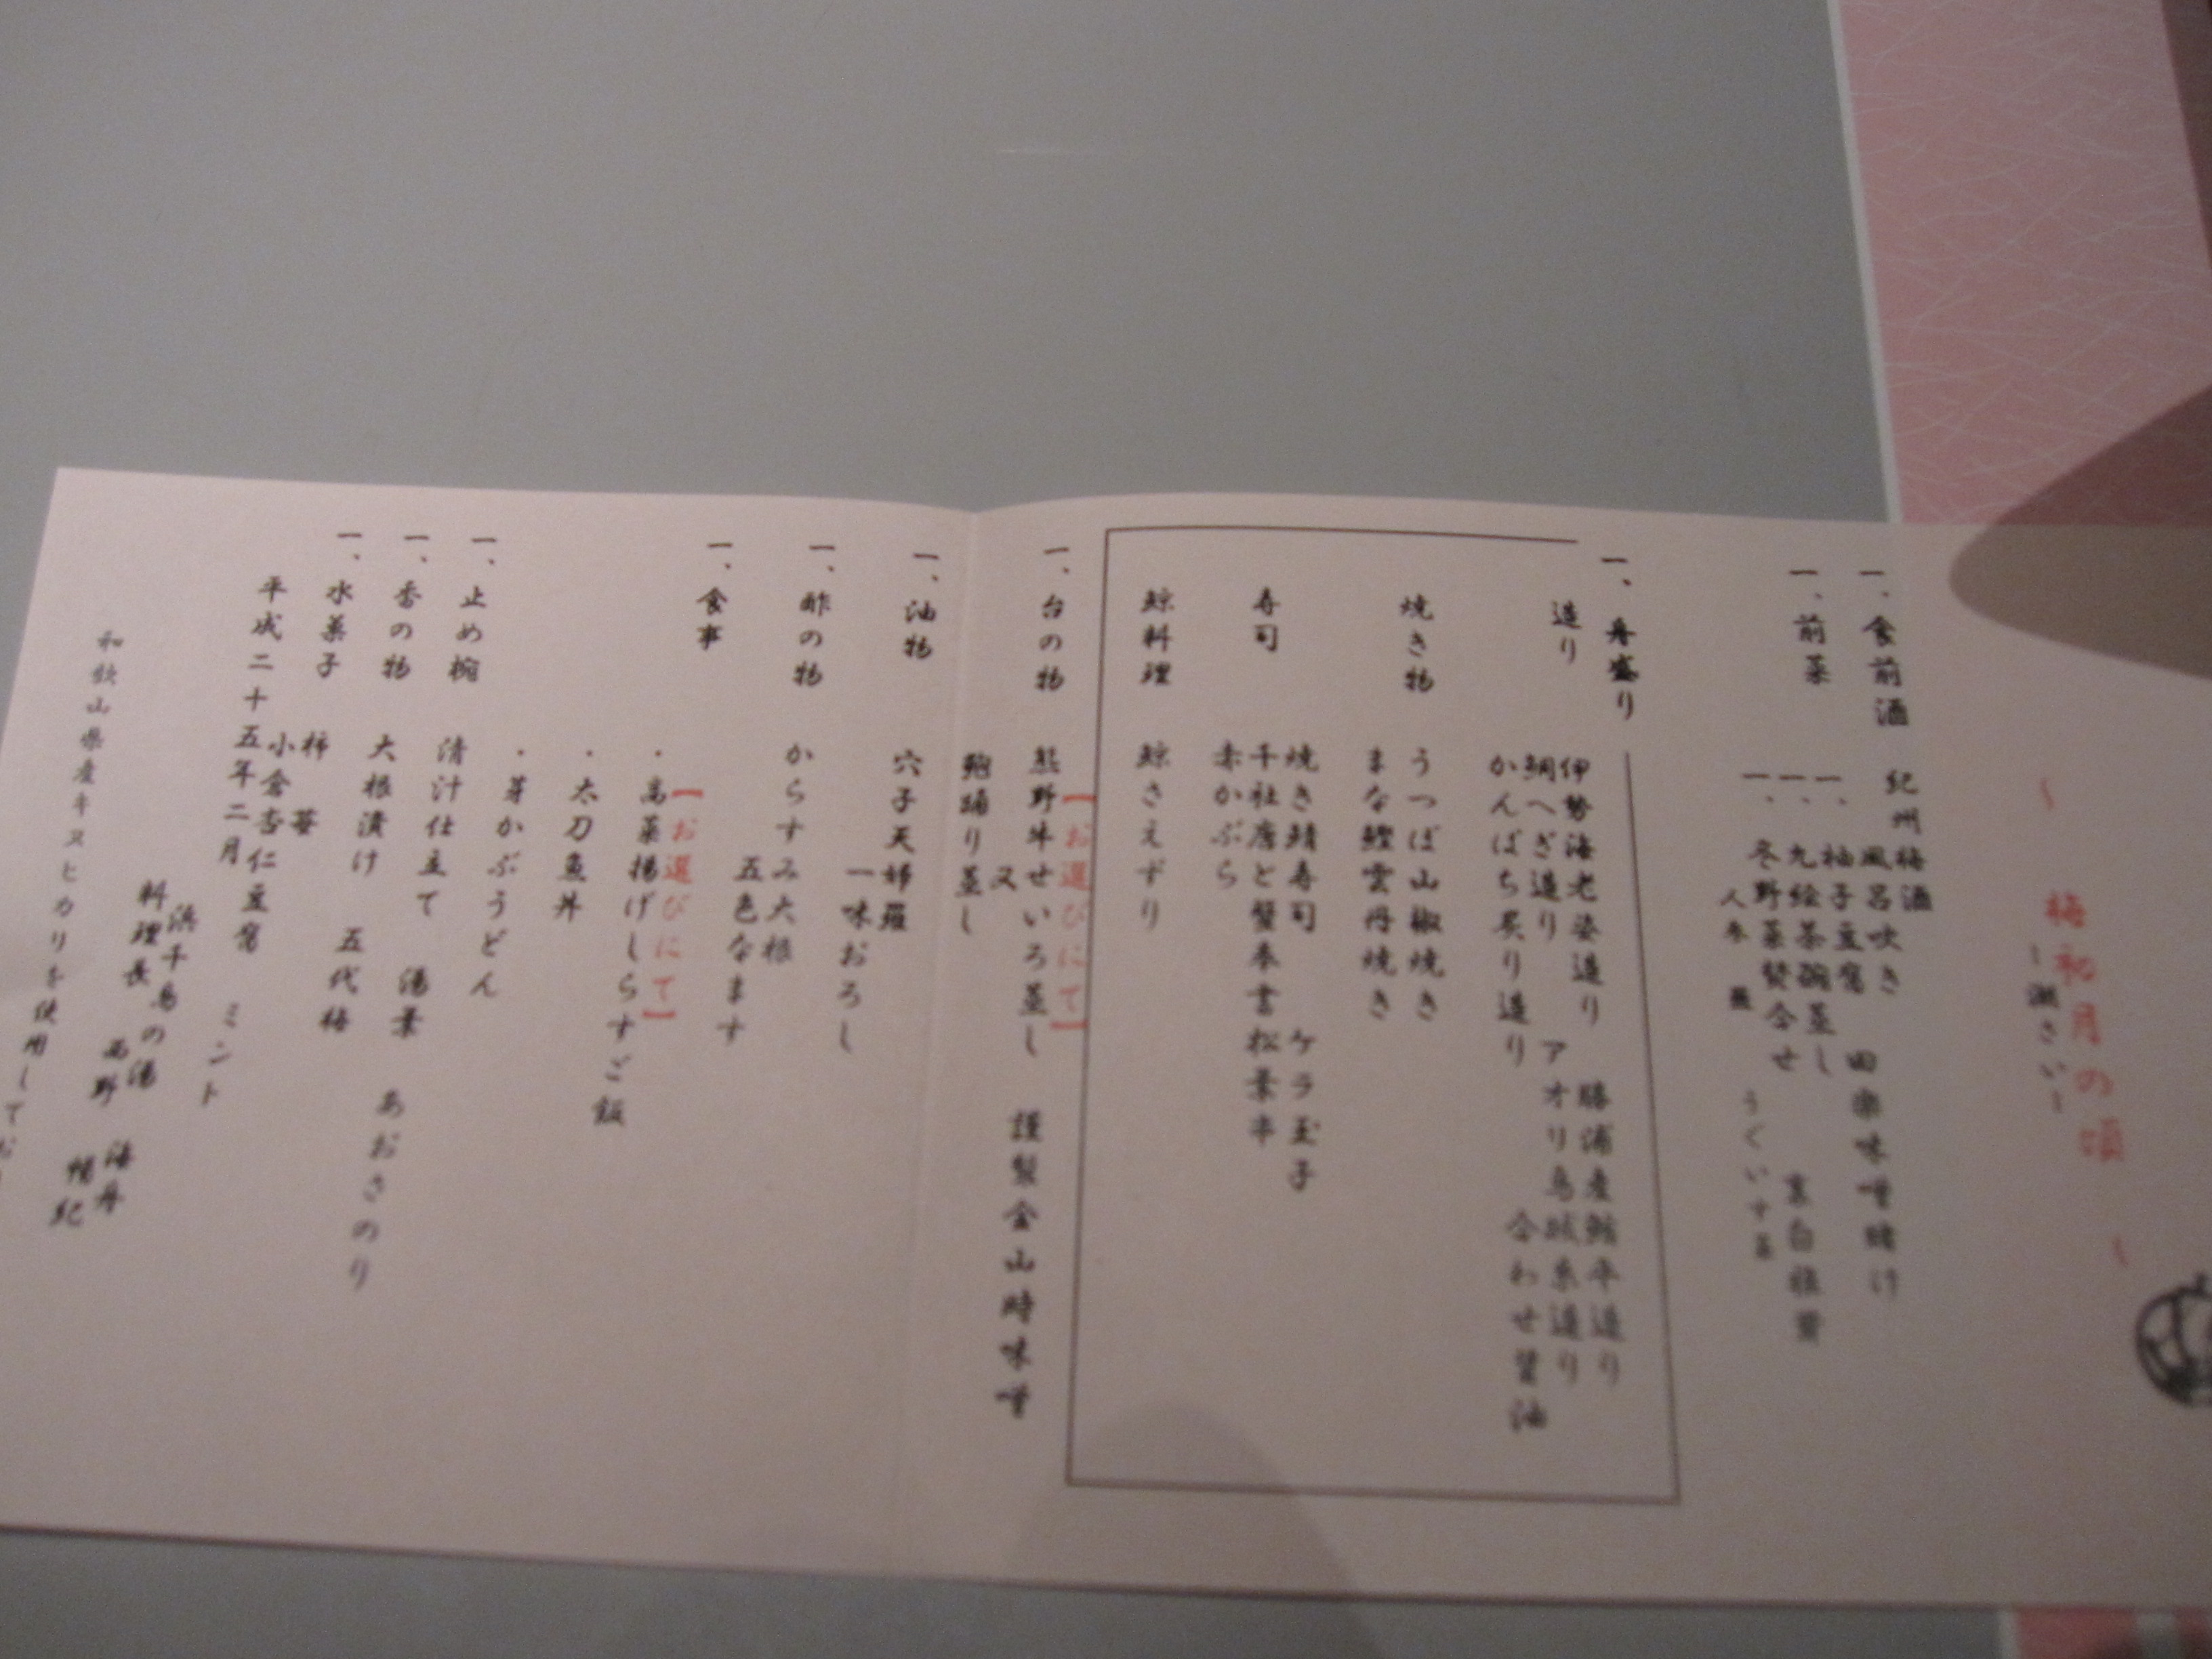 ～ 梅初月の頃 ～
－潮さい－
一、食前酒 紀州梅酒
一、前菜
一、風呂吹き 田楽味噌
一、柚子豆腐
一、九絵茶碗蒸し
一、冬野菜賛合せ うぐいす
人参
一、舟盛り
造り 伊勢海老姿造り 勝浦産鮪平造り
鯛へぎ造り アオリ烏賊糸造り
かんぱち炙り造り 合わせ醤油
焼き物 うつぼ山椒焼き
まな鰹雲丹焼き
寿司 焼き鯖寿司 ケラ玉子
千社唐と蟹奉書松葉串
赤かぶら
鯨料理 鯨さえずり
一、台の物 【お選びにて】
熊野牛せいろ蒸し 謹製金山時味噌
又
鮑踊り蒸し
一、油物 穴子天婦羅
一味おろし
一、酢の物 からすみ大根
五色なます
一、食事 【お選びにて】
・高菜揚げしらすご飯
・太刀魚丼
・芽かぶうどん
一、止め椀 清汁仕立て 湯葉 あおさのり
一、香の物 大根漬け 五代梅
一、水菓子 柿 苺
小倉杏仁豆腐 ミント
平成二十五年二月
浜千鳥の湯 海舟
料理長 西野
和歌山県産キヌヒカリを使用してお